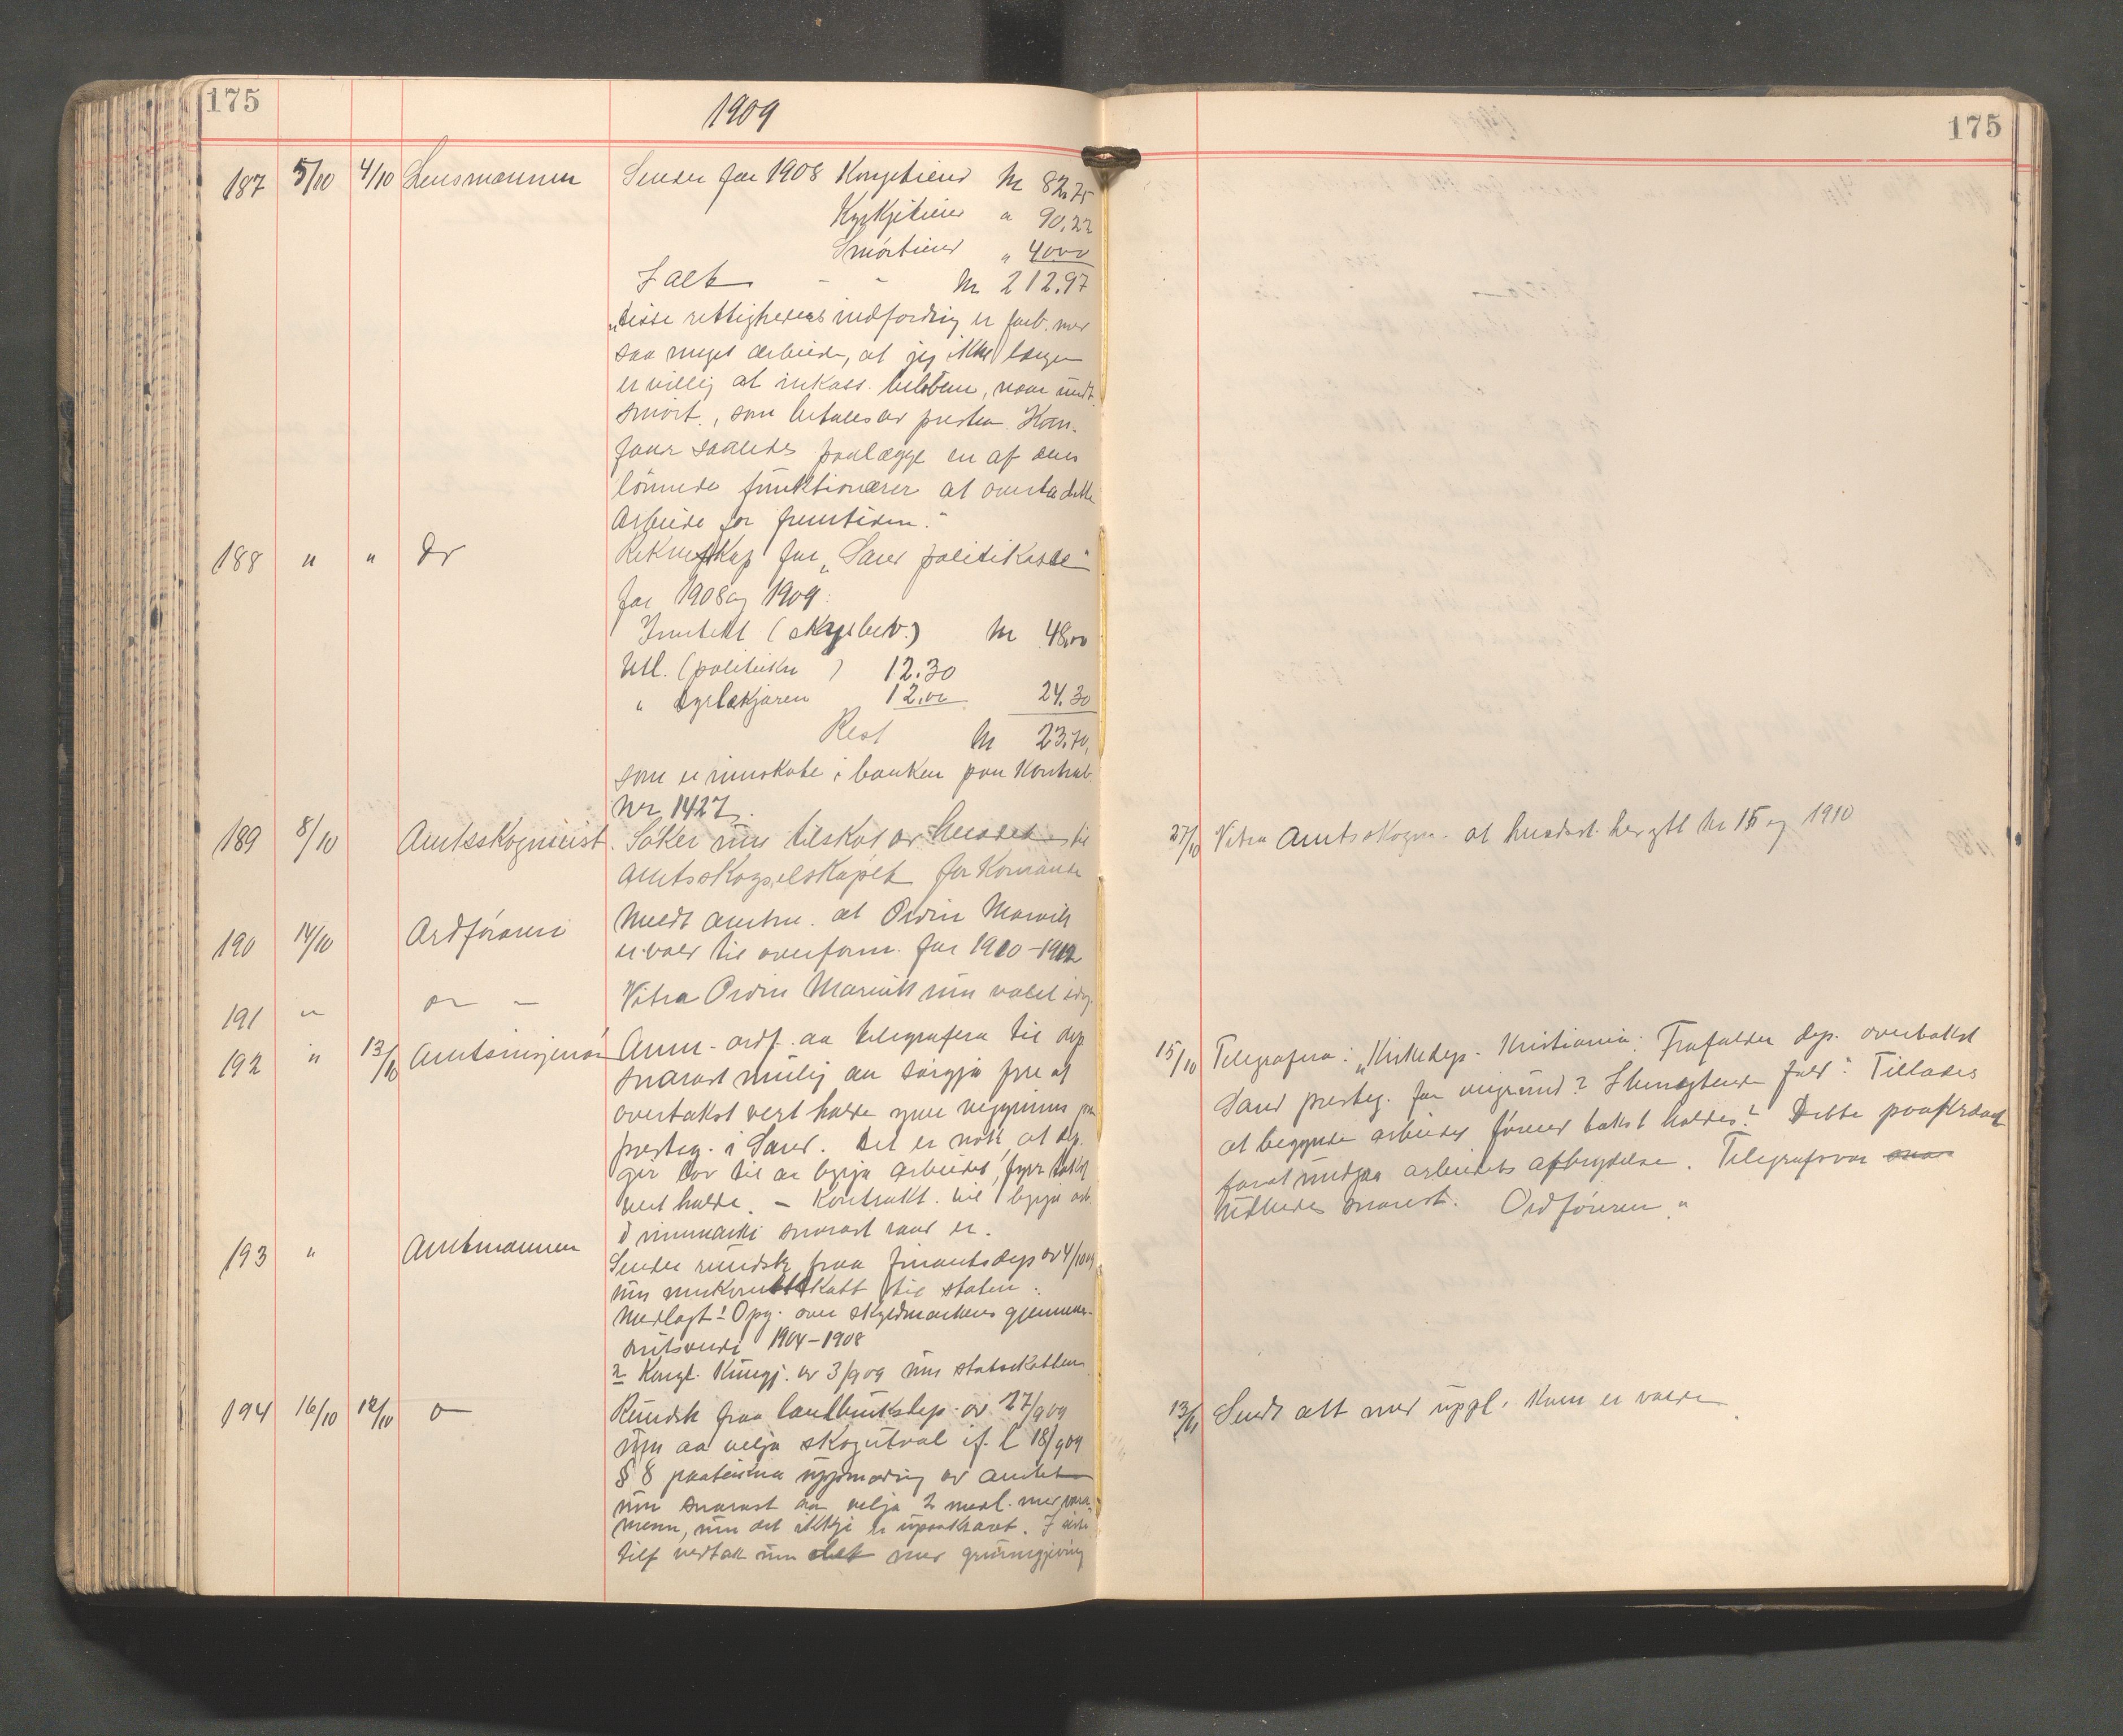 175
1909
187 5/10 4/10 Lensmannen Sender for 1908 Kongetiend Kr 82,75
Kyrkjetiend " 90,22
Smörtiend " 40,00
I alt - - Kr 212.97
"Disse rettigheders indfordrig er forb. med
saa meget arbeide, at jeg ikke længer
er villig at inkass. belöbene, naar undt.
smört., som betales av presten. Kom.
faar saaledes paalægge en af sine
lönnede funktionærer at overta dette
Arbeide for fremtiden."
188 " " Do Reknesskap for "Sand politikasse"
for 1908 og 1909:
Inntekt (skyssbev.) Kr 48,00
Utl. (politiske ) 12.30
" Dyrlækjaren 12,00 24.30
Rest Kr 23,70,
som er innskote i banken paa Kontrab.
nr 1427.
189 8/10 Amtsskogmeist. Söker um tilskot av heradet til
Amtsskogselskapet for Komande
190 14/10 Ordföraren Meldt amtm. at Odin Marvik
er vald til overform. for 1910-1912
191 " " - Vitra Odin Marvik um valet
192 " 13/10 Amtsinsjenör Anm. ordf. aa telegrafera til dep
snarast mulig aa sörgja fyre at
overtakst vert halde yver veggrunn paa
presteg. i Sand. Det er nok at dep.
gir lov til aa byrja arbeidet, fyrr takst
vert halde. - Kontrakt. vil byrja arb.
i innmarki snarast raad er.
193 " Amtmannen Sender rundskr. fraa Finantsdep av 4/10 09
um innkomeskatt til staten.
Medlagt: 1 Opg. over skyldmarkens gjennem-
snitsverdi 1904-1908
2 Kongl. Kungj. av 3/9 09 um statsskatten
194 16/10 12/10 o Rundsk fraa landbruksdep. av 27/9 09
um aa velja skogutval if. L 18/9 09
§ 8 paateikna uppmoding av amtet
um snarast aa velja 2 medl. med vara-
menn, um det ikkje er upaakravt. I siste
tilf vedtak um det med grunngjeving
175
27/10 Vitra Amtsskogm. at heradsst. hev ytt kr 15 og 1910
15/10 Telegrafera: "Kirkedep. Kristiania: Frafalder dep. overtakst
Sand presteg. for veigrund? I benegtende fald: Tillades
at begynde arbeidet förend takst holdes? Dette paakrævet
forat undgaa arbeidets afbrydelse. Telegrafsvar
udbedes snarest. Ordföreren."
13/11 Sendt att med uppl. kven er valde